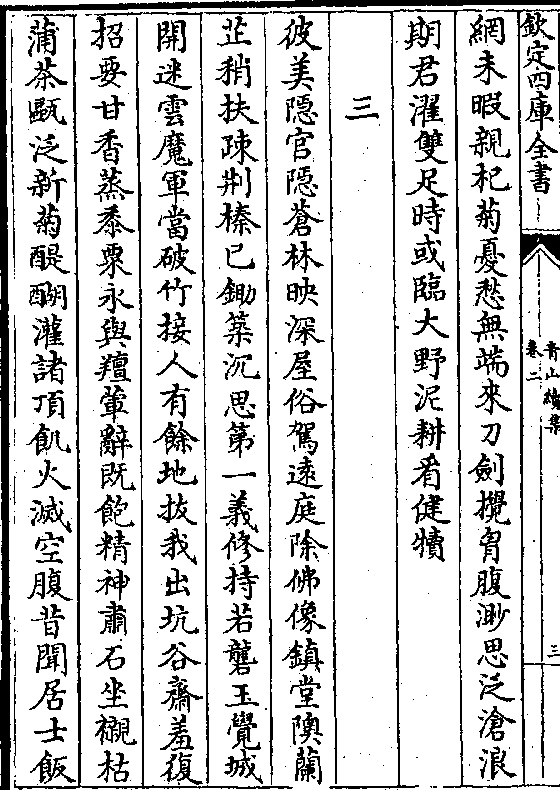 欽定四庫全書
青山續集
卷二
三
網未暇親杞菊憂愁無端來刀劍攪胷腹渺思泛滄浪
期君濯雙足時或臨大野泥耕看健犢
三
彼美隠官隠蒼林映深屋俗駕逺庭除佛像鎮堂隩蘭
芷稍扶疎荆榛已鋤築沉思第一義修持若礱玉覺城
開迷雲魔軍當破竹接人有餘地拔我出坑谷齋羞復
招要甘香蒸黍粟永與羶葷辭既飽精神肅石坐襯枯
蒲茶甌泛新菊醍醐灌諸頂飢火滅空腹昔聞居士飯